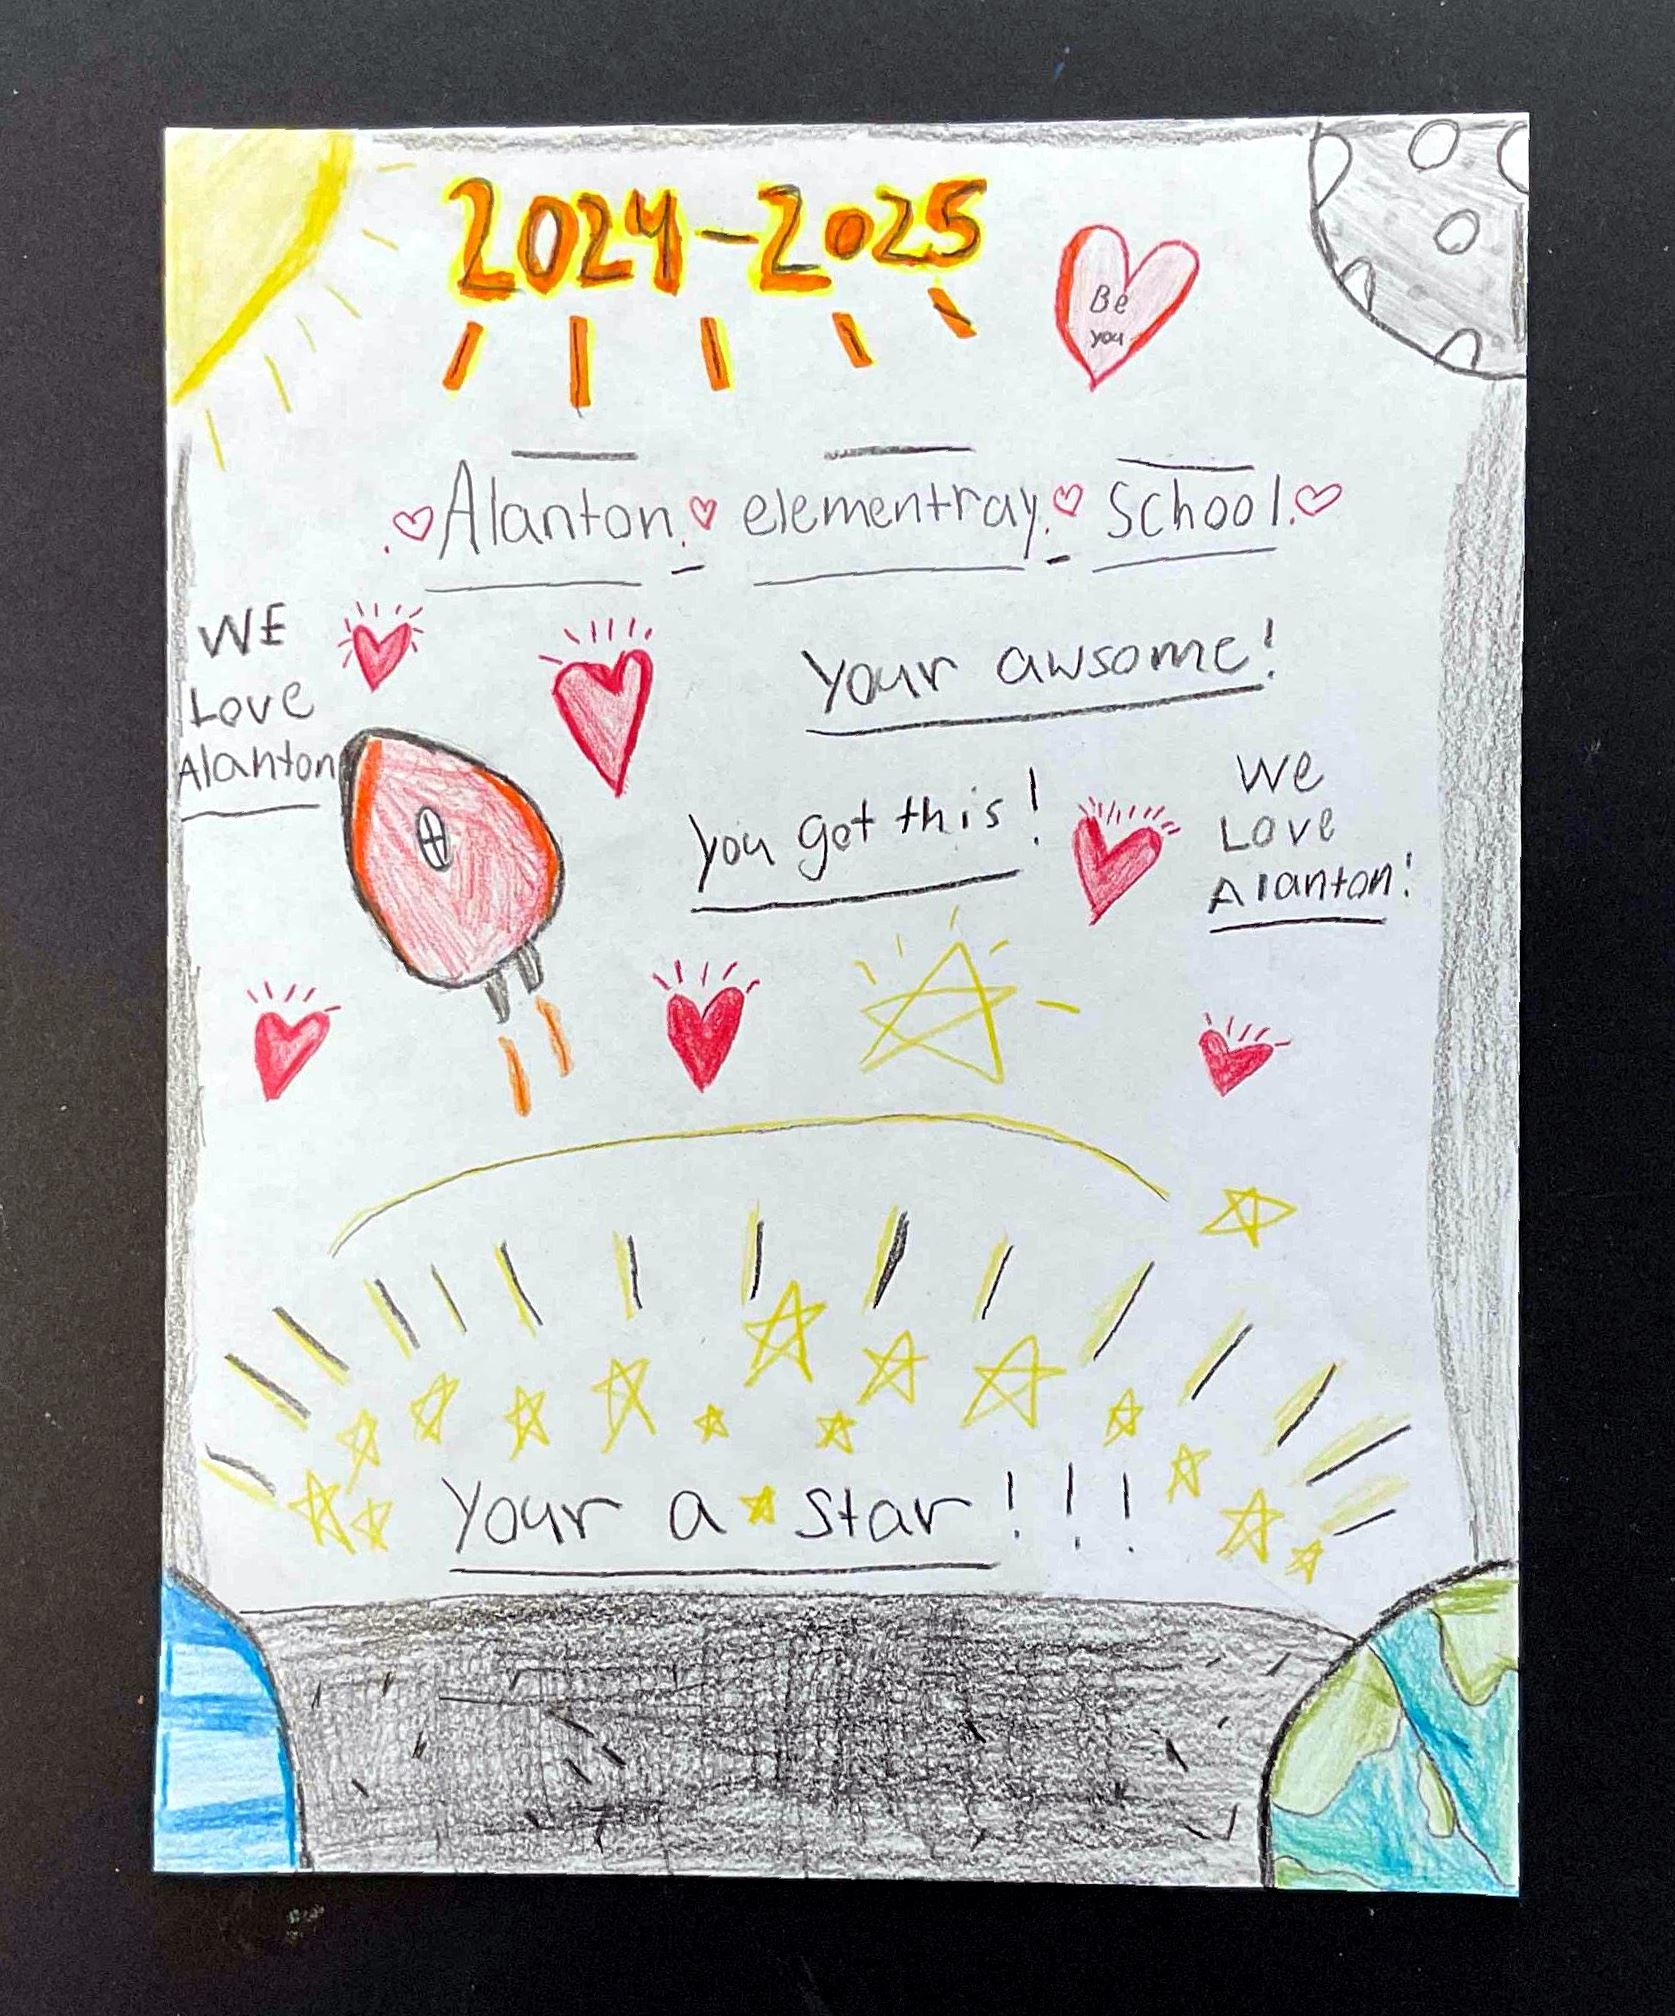 2024-2025
Be
you
Alanton elementray school
WE
Love
Alanton
Your awsome!
you got this!
We
Love
Alanton!
Your a star!!!